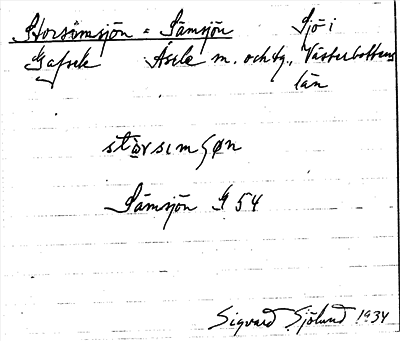 Storsämsjön = Sämsjön Sjö i
Gafsele Åsele m. och tg., Västerbottens
län
Sämsjön G 54
Sigvard Sjölund 1934